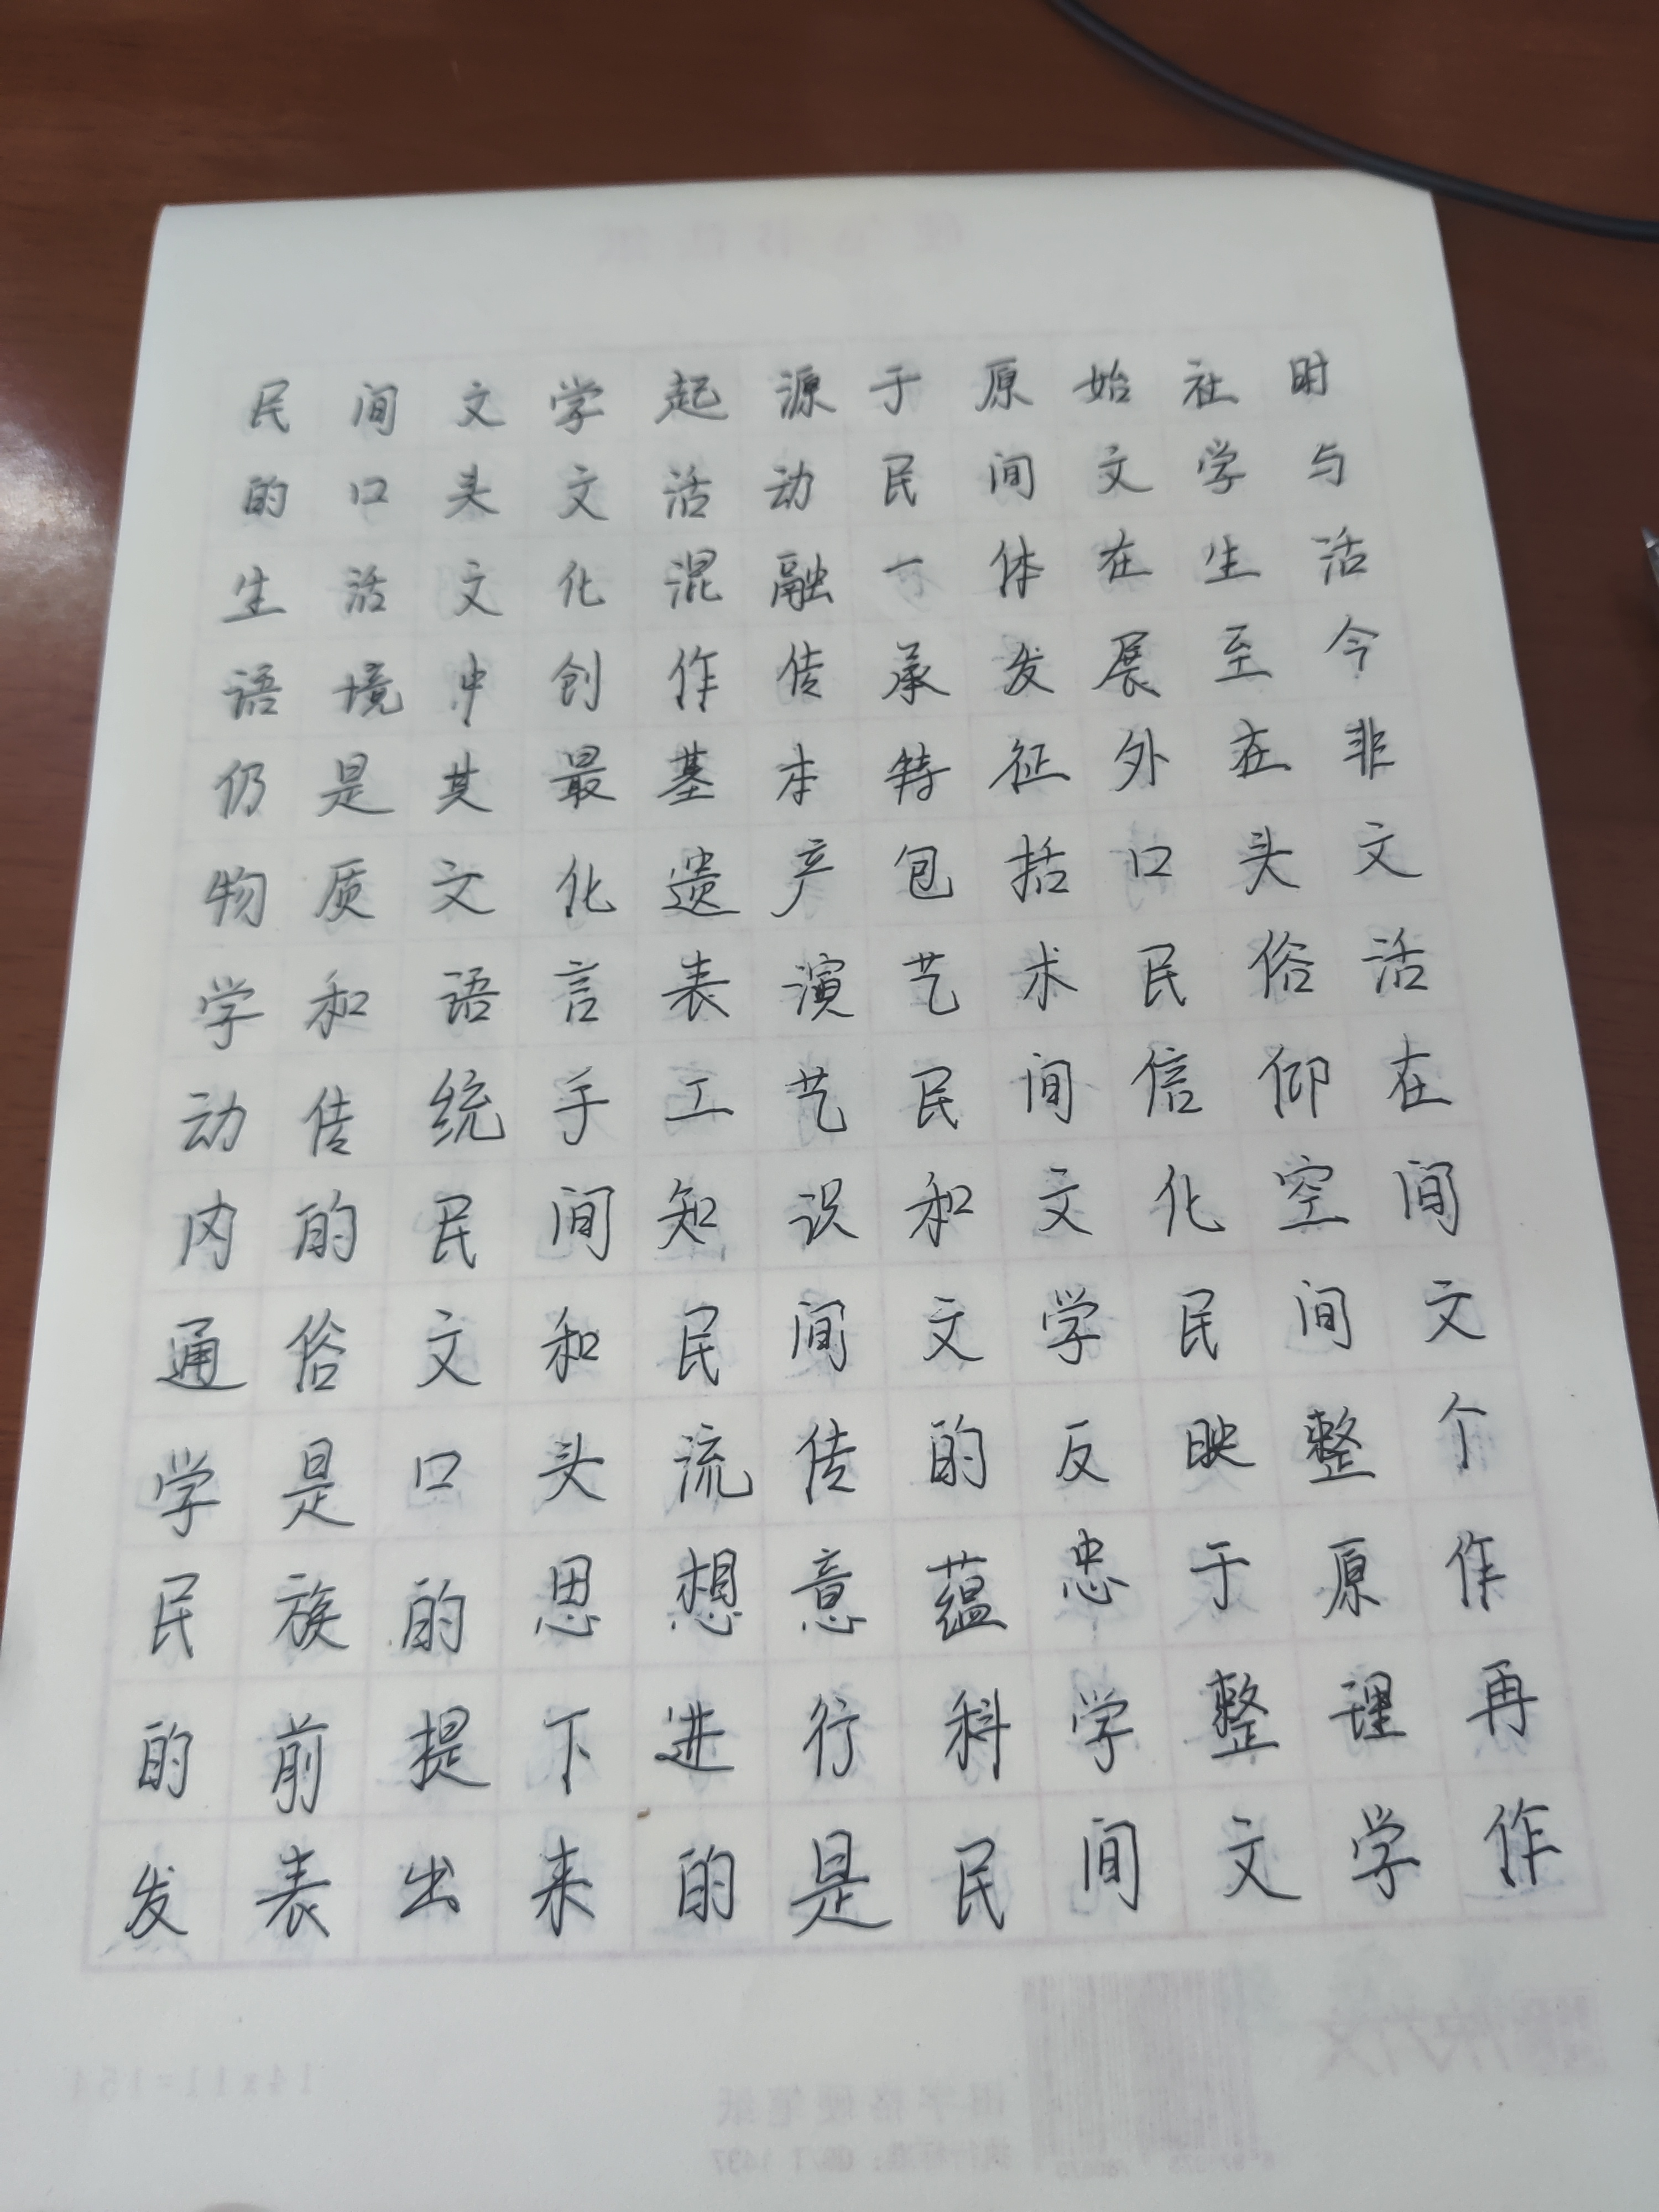 民间文学起源于原始社时
的口头文活动民间文学与
生活文化混融一体在生活
语境中创作传承发展至今
仍是其最基本特征外在非
物质文化遗产包括口头文
学和语言表演艺术民俗活
动传统手工艺民间信仰在
内的民间知识和文化空间
通俗文和民间文学民间文
学是口头流传的反映整个
民族的思想意蕴忠于原作
的前提下进行科学整理再
发表出来的是民间文学作